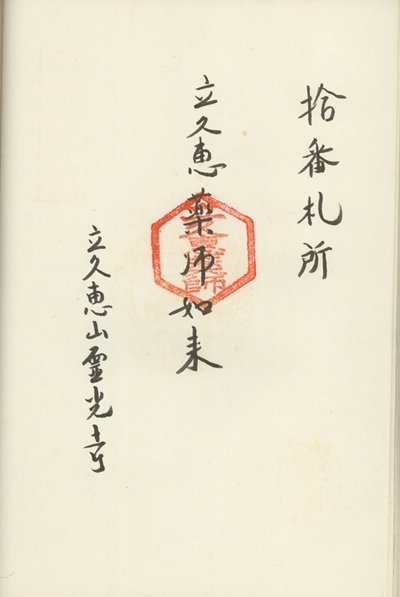 拾番札所
立久恵薬师如来
立久恵山霊光寺